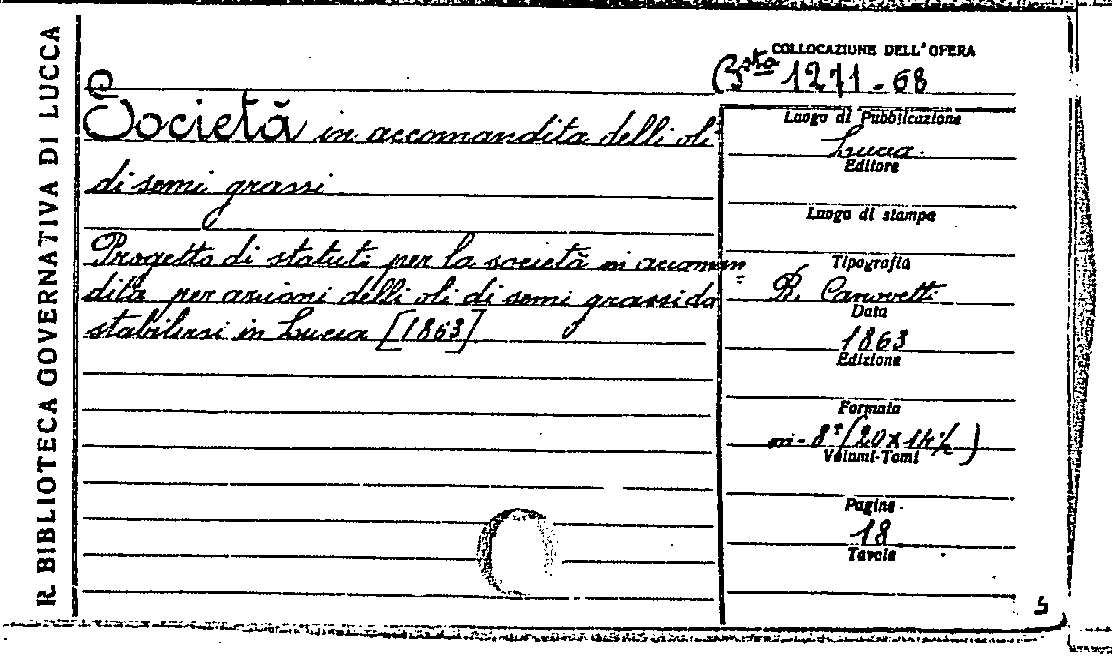 R. BIBLIOTECA GOVERNATIVA DI LUCCA
COLLOCAZIONE DELL'OPERA
Bsta 1271-68
Società in accomandita delli oli
di semi grassi
Progetto di statuti per la società in accoman=
dita per azioni delli oli di semi grassi da
stabilirsi in Lucca [1863]
Luogo di Pubblicazione
Lucca
Editore
Luogo di stampa
Tipografia
B. Canovetti
Data
1863
Edizione
Formato
in-8° (20 x 14½)
Volumi-Tomi
Pagine
18
Tavole
5